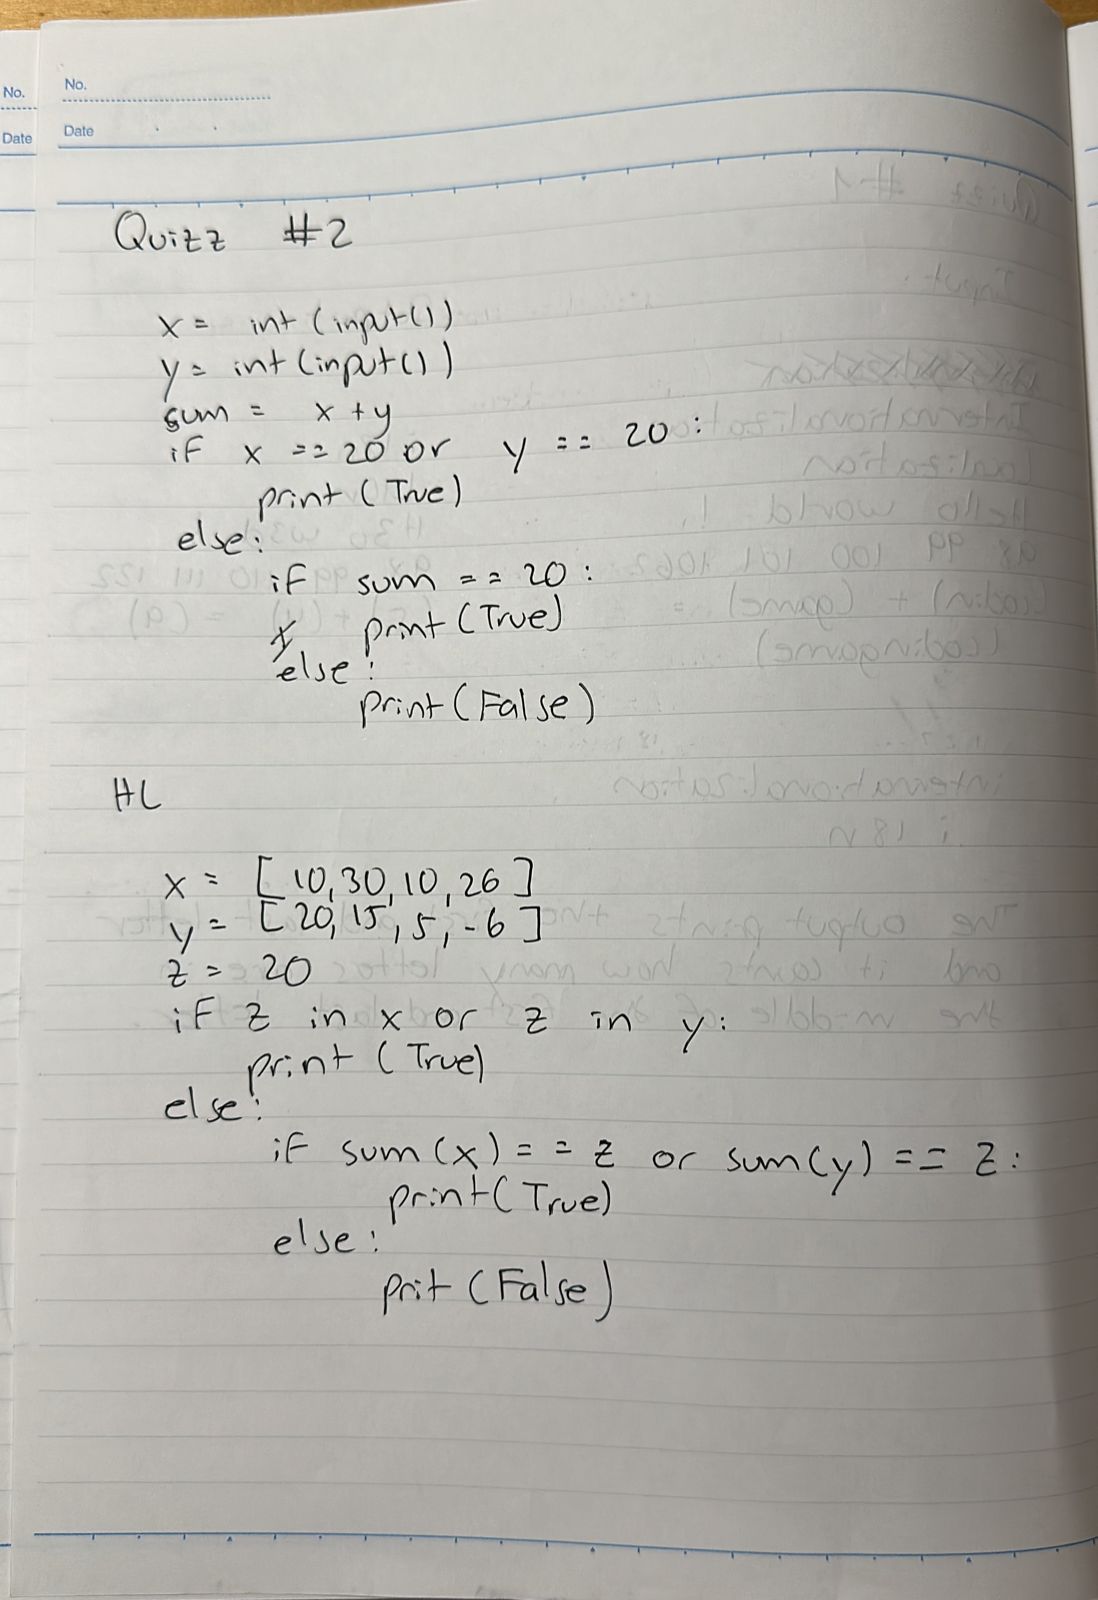 No.
Date
No.
Date
Quizz #2
x = int (input())
y = int (input())
sum = x + y
if x == 20 or y == 20 :
print (True)
else:
if sum == 20 :
print (True)
else:
print (False)
HL
x = [ 10, 30, 10, 26 ]
y = [ 20, 15, 5, -6 ]
z = 20
if z in x or z in y:
print ( True)
else:
if sum (x) == z or sum(y) == z:
print( True)
else:
prit (False)